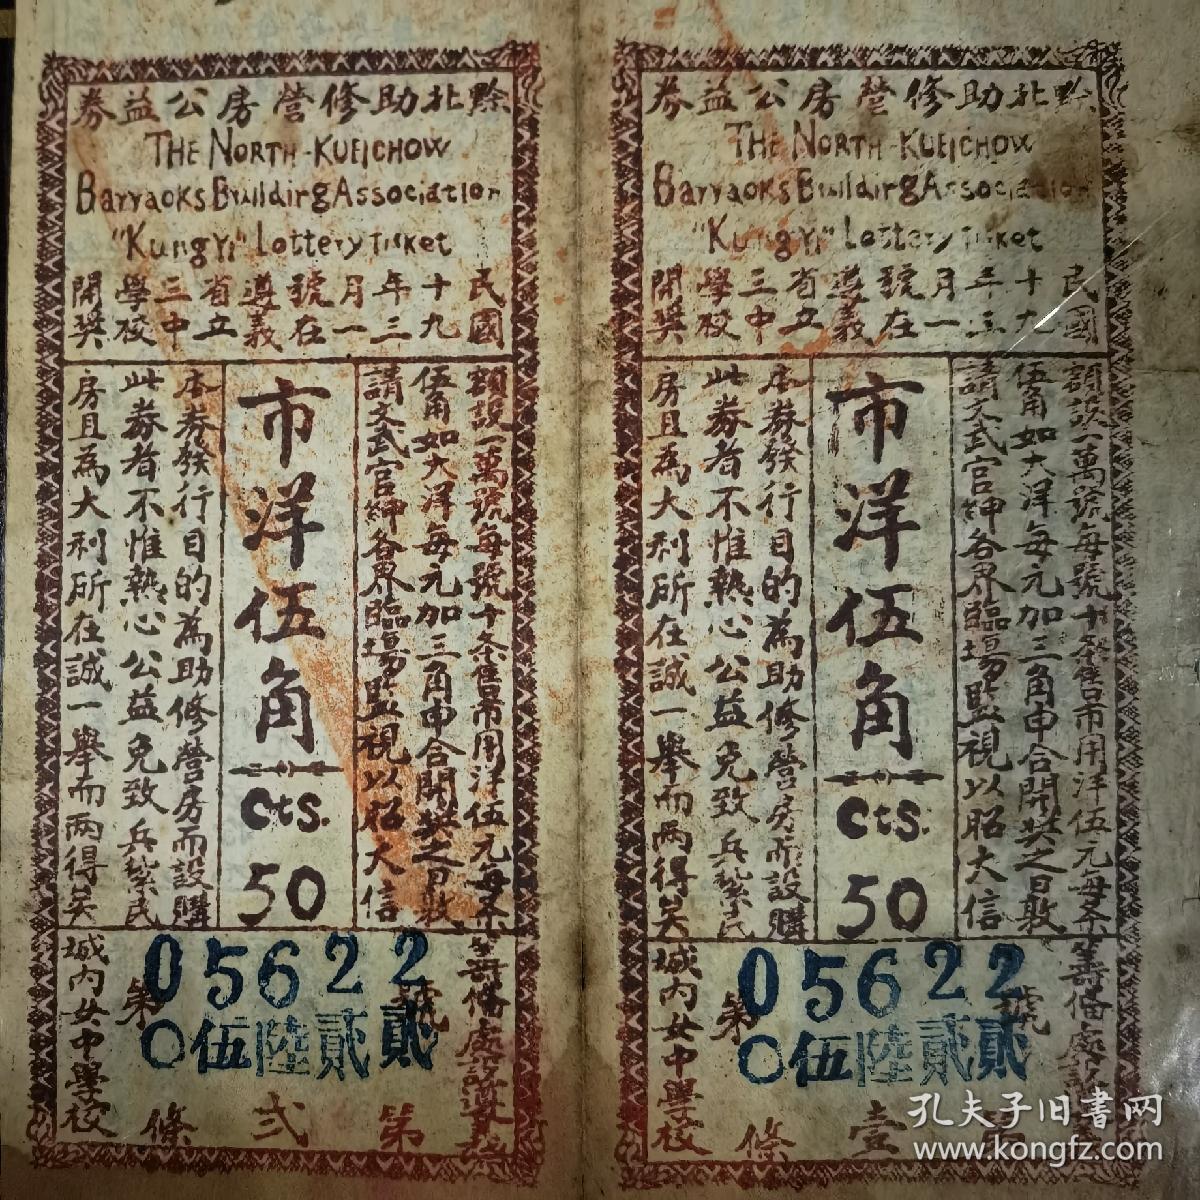 黔北助修營房公益券
THE NORTH-KUEICHOW
Barraoks Building Association
"Kung Yi" Lottery Ticket
民國十九年三月一號在遵義省立三中學校開獎
額設一萬號每號十条售市用洋伍元每条
伍角如大洋每元加三角申合開奬之日敦
請文武官紳各界臨場監視以昭大信
市洋伍角
cts.
50
本券發行目的為助修營房而設購
此券者不惟熱心公益免致兵紮民
房且為大利所在誠一舉而兩得矣
05622
第 號
〇伍陸貳貳
第弍條
籌備處設遵義
城內女中學校
黔北助修營房公益券
THE NORTH-KUEICHOW
Barraoks Building Association
"Kung Yi" Lottery Ticket
民國十九年三月一號在遵義省立三中學校開獎
額設一萬號每號十条售市用洋伍元每条
伍角如大洋每元加三角申合開奬之日敦
請文武官紳各界臨場監視以昭大信
市洋伍角
cts.
50
本券發行目的為助修營房而設購
此券者不惟熱心公益免致兵紮民
房且為大利所在誠一舉而兩得矣
05622
第 號
〇伍陸貳貳
壹條
籌備處設
城內女中學校
孔夫子旧书网
www.kongfz.com